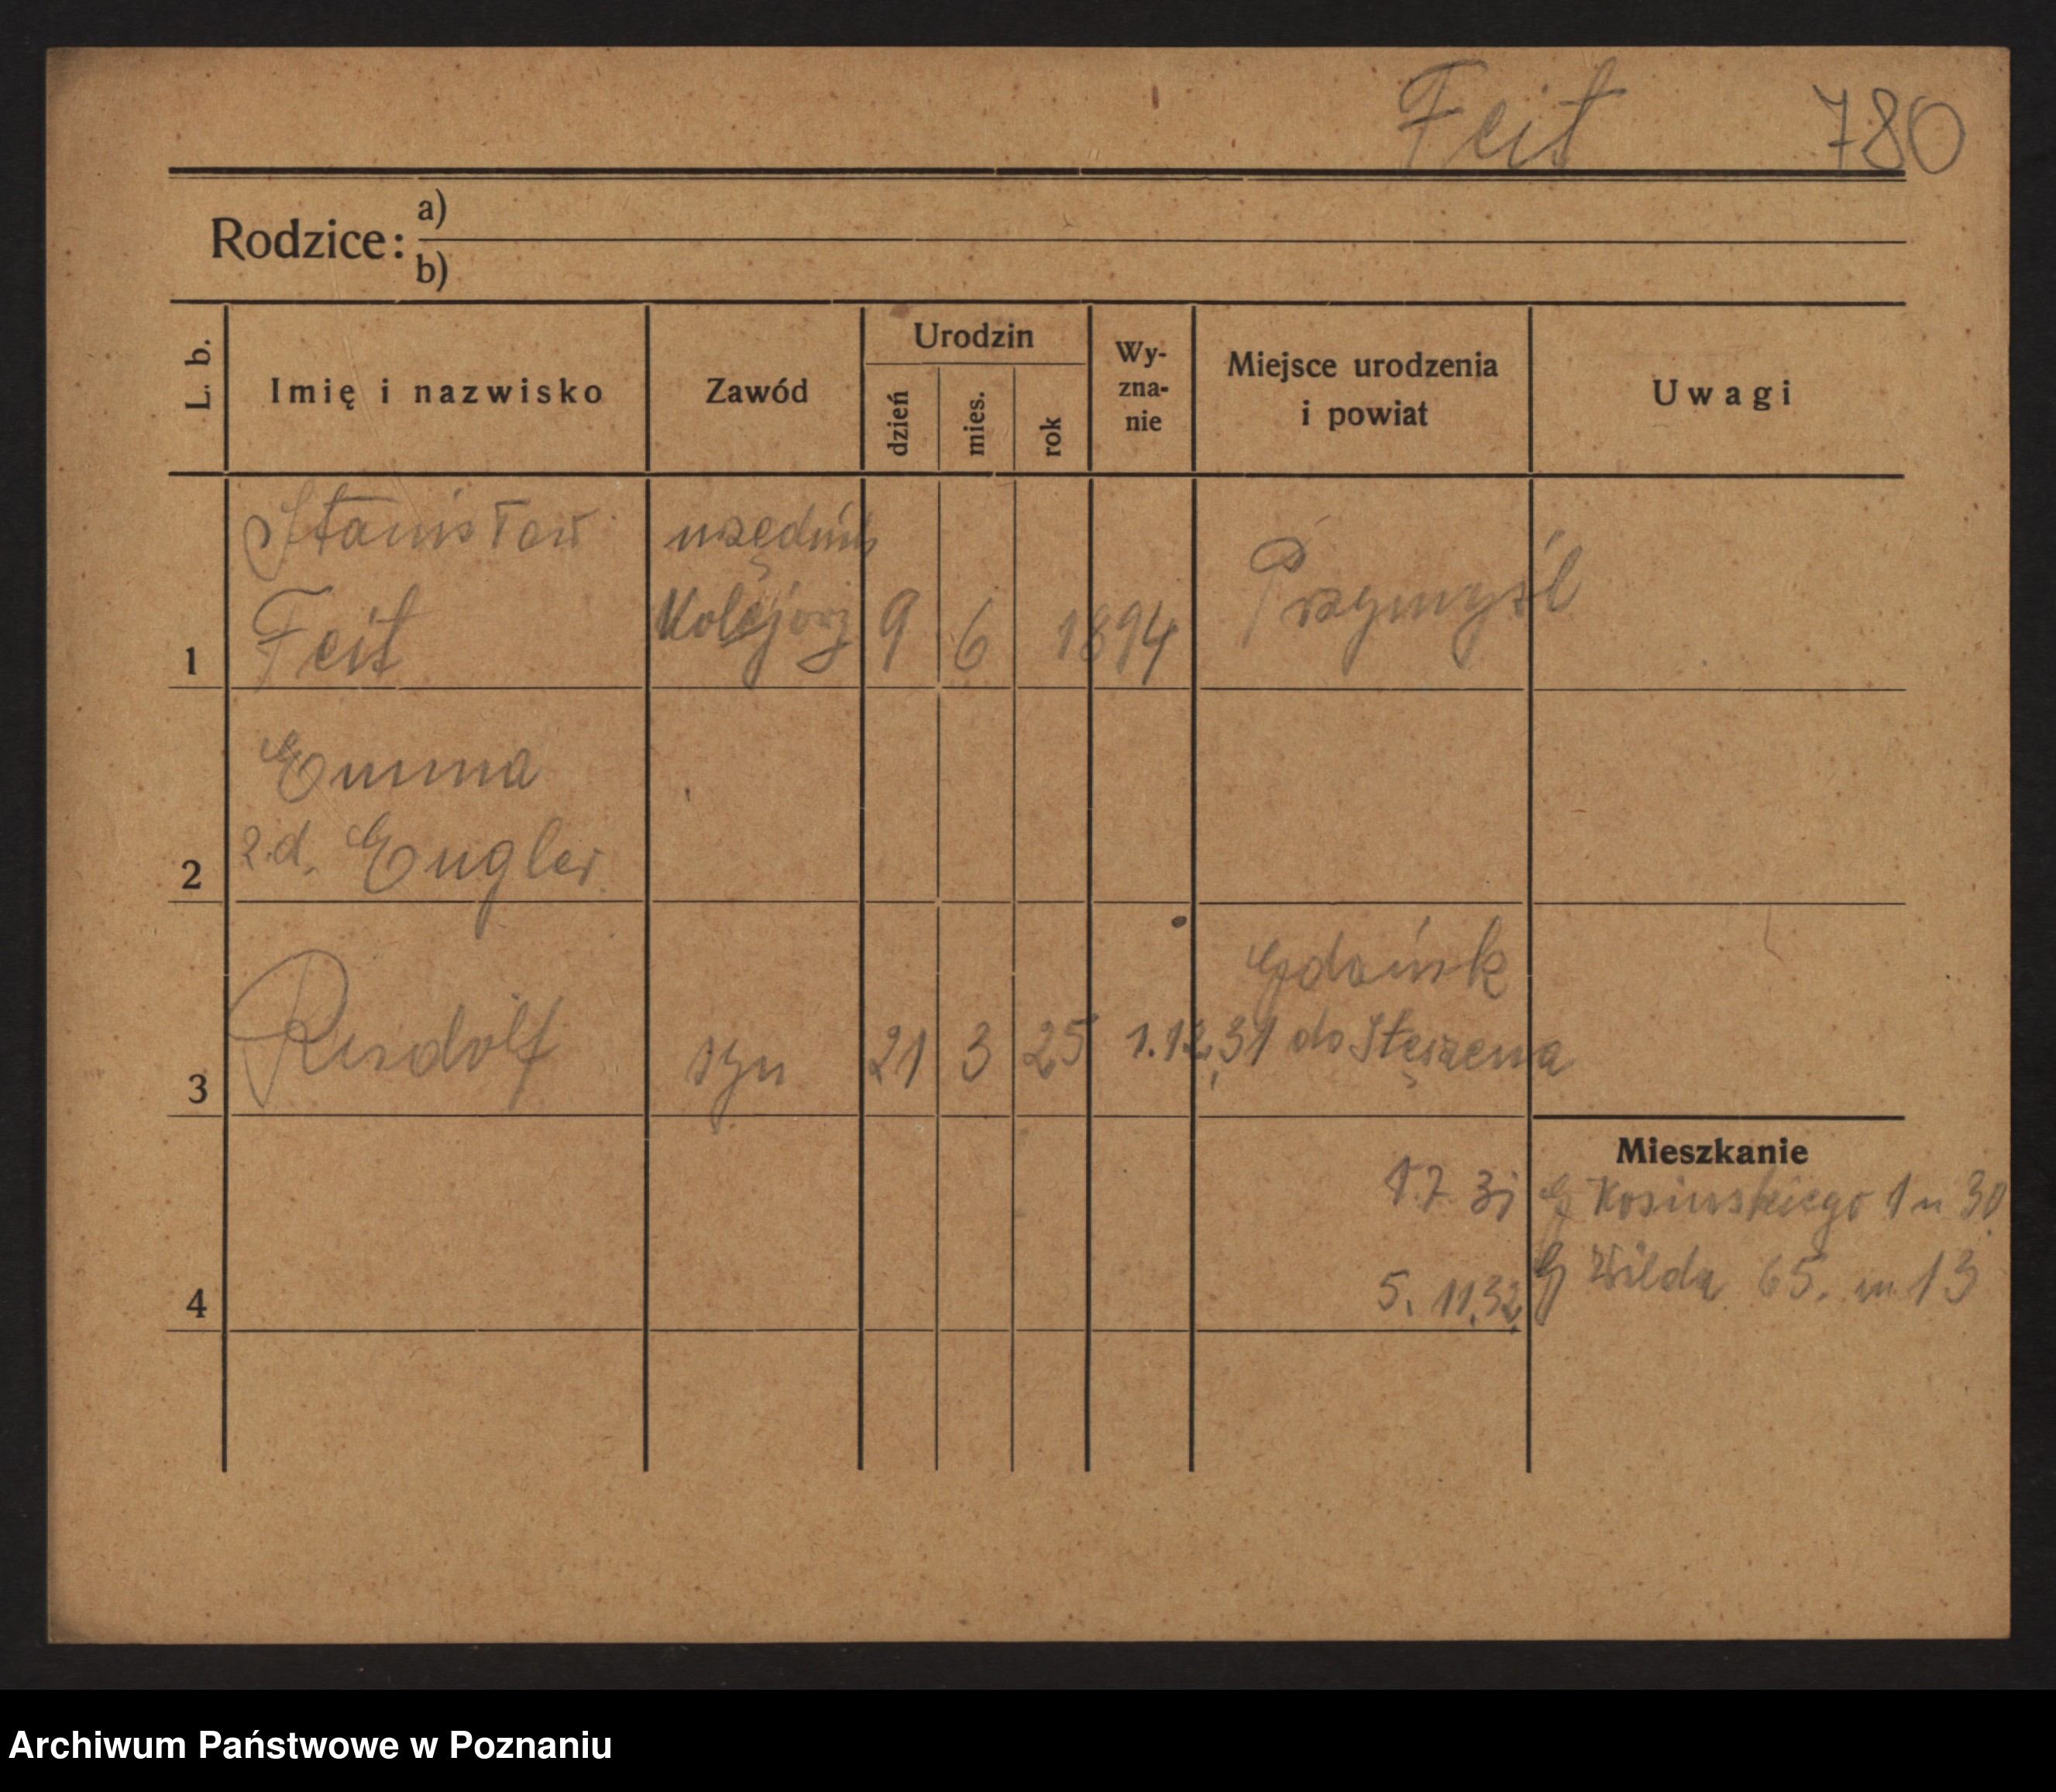 Feit 780
Rodzice:
a)
b)
L. b.
Imię i nazwisko
Zawód
Urodzin
dzień
mies.
rok
Wy-
zna-
nie
Miejsce urodzenia
i powiat
Uwagi
1
Stanisław
Feit
urzędnik
Kolejowy
9 6 1894
Przemyśl
2
Emma
z.d. Engler
3
Rudolf
syn
21 3 25
Gdańsk
1.12.31 do Stęszewa
Mieszkanie
1.7.31 G Kosińskiego 1 m 30
4
5.11.32 G Wilda 65. m 13
Archiwum Państwowe w Poznaniu